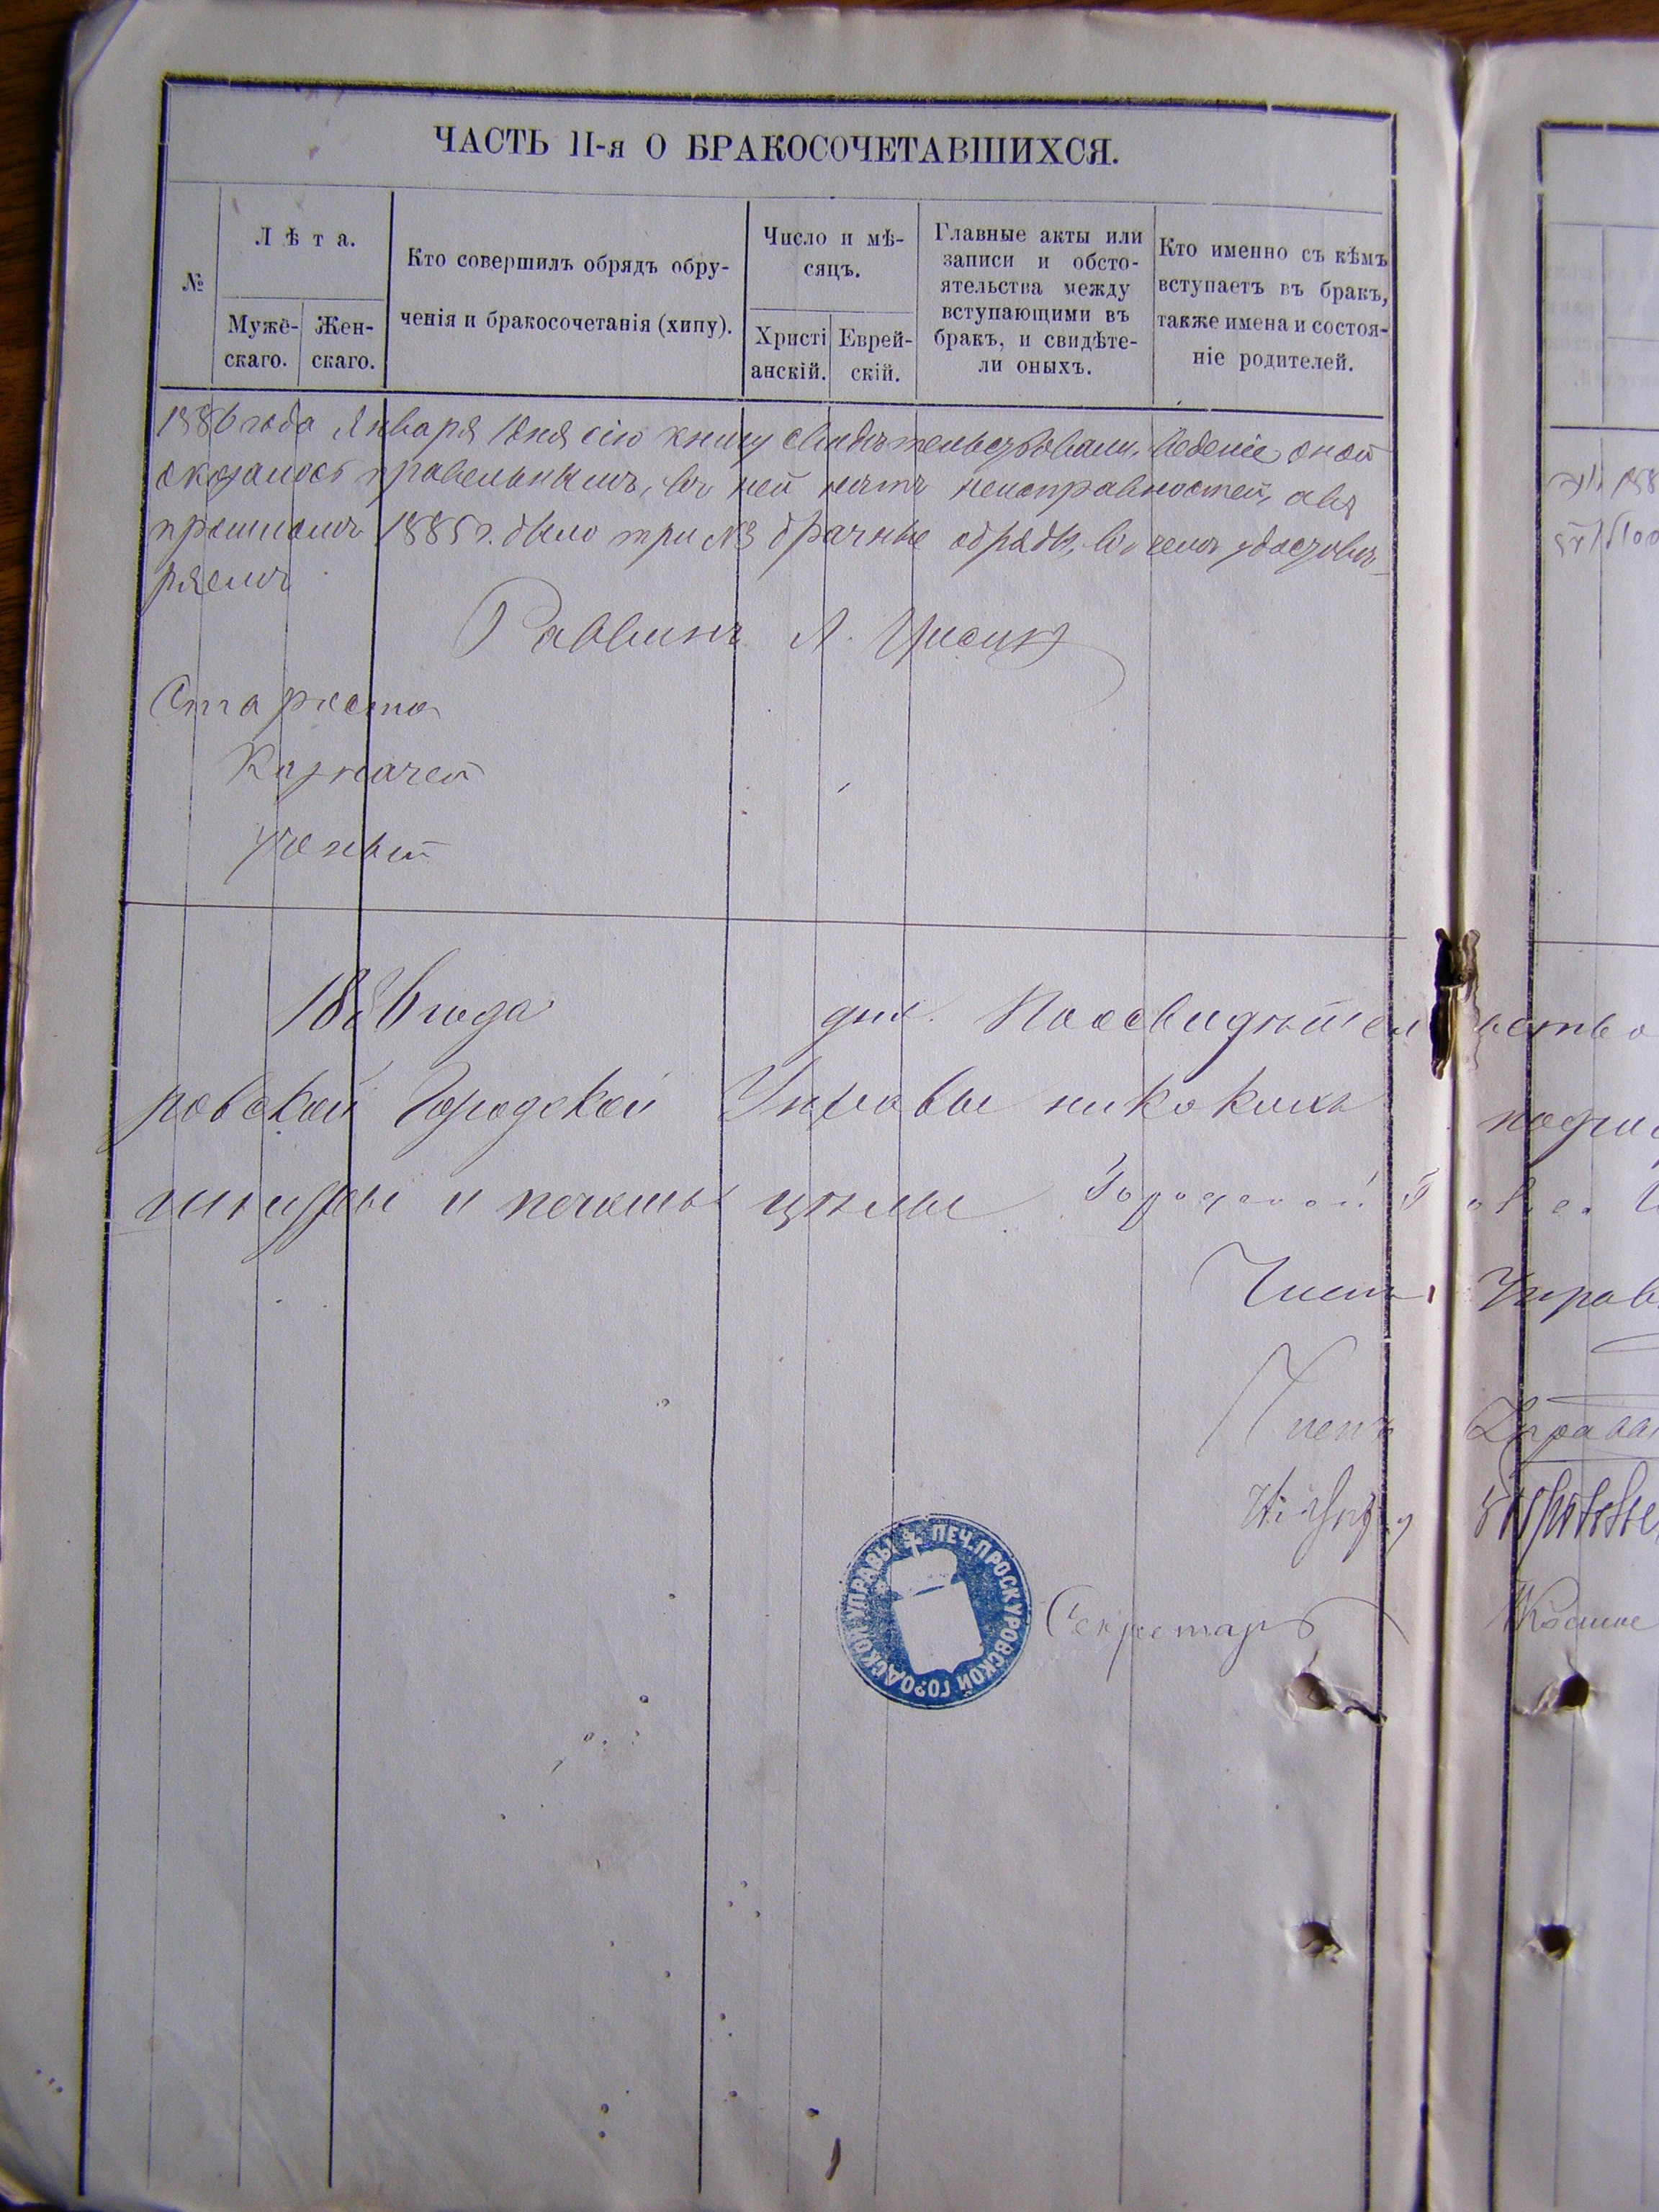 ЧАСТЬ II-я О БРАКОСОЧЕТАВШИХСЯ.
№
Лѣта.
Мужескаго.
Женскаго.
Кто совершилъ обрядъ обру-
ченія и бракосочетанія (хипу).
Число и мѣ-
сяцъ.
Христі
анскій.
Еврей-
скій.
Главные акты или
записи и обсто-
ятельства между
вступающими въ
бракъ, и свидѣте-
ли оныхъ.
Кто именно съ кѣмъ
вступаетъ въ бракъ,
также имена и состоя-
ніе родителей.
1886 года Января 1 дня сію книгу свидѣтельствовали, веденіе оной
оказалось правельнымъ, въ ней нѣтъ неисправностей, а въ
прошломъ 1885 г. было три №3 брачные обряды, въ чемъ удостовѣ-
ряемъ
Раввинъ Л.
Староста
Казначей
Ученый
1886 года дня. По освидѣтельство
ровской Городской Управы никакихъ подчис
шнуры и печать цѣлы. Городской Голова
Членъ Управы
Членъ Управы
Секретарь
ПЕЧ. ПРОСКУРОВСКОЙ ГОРОДСКОЙ УПРАВЫ